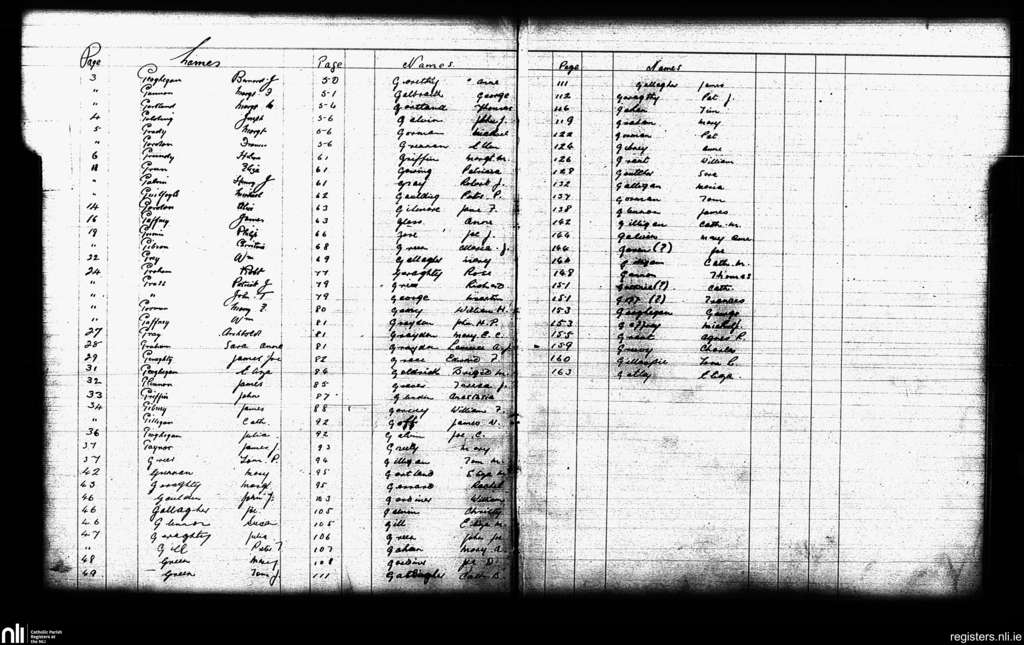 Page Names
3 Geoghegan Bernard J
" Gannon Margt J
" Gartland Margt
4 Joseph
5 Grady Margt
" Gordon Francis
6 Grundy Helen
11 Eliza
" Galvin Henry J
" Guilfoyle Michael
14 Gordon
16 Gaffney James
19
" Gibson Christina
22 Gray Wm
24 Graham Robt
" Grass Patrick J
" " John T
" Gorman Mary F.
" Gaffney Wm
27 Gray Archbold
28 Graham Sara Anne
29 Geraghty James Joe
31 Geoghegan Eliza
32 Glennon James
33 Griffin John
34 Gibney James
" Gilligan Cath.
36 Geoghegan Julia
37 Gaynor James J.
37 Greer Tom P.
42 Guernan Mary
43 Geraghty Margt
46 Goulden John J.
46 Gallagher Joe
46 Glennon Susan
47 Geraghty Julia
" Gill Peter T
48 Green Mary
49 Green Tom J.
Page Names
50 Geraghty Anne
51 Galbraith George
54 Gartland Thomas
56 Galvin John J.
56 Gorman Michael
56 Greenan Ellen
61 Griffin Margt M.
61 Going Patricia
61 Gray Robert J.
62 Goulding Peter P.
63 Gilmore Jane F.
63 Glass Anne
66 Joe J.
68 Green Maria J.
69 Gallagher Mary
77 Geraghty Rose
79 Greer Richard
79 George Martin
80 Geary William H.
81 Graydon John H. P.
81 Graydon Mary E. C.
81 Graydon Laurence A. J.
82 Grace Edward F.
84 Goldrick Brigid M.
85 Graves Teresa J.
87 Anastasia
88 William F.
92 Goff James N.
92 Galvin Joe C.
93 Greely Mary
94 Gilligan Tom M.
95 Gartland Eliza M.
95 Gerrard Rachel
103 Gardiner William
105 Galvin Christy
105 Gill Eliza M.
106 Green John Joe
107 Gahan Mary A.
108 Gardiner Joe D.
111 Gallagher Cath. B.
Page Names
111 Gallagher James
112 Geraghty Pat J.
116 Gahan Tim
119 Graham Mary
122 Gorman Pat
124 Gibney Anne
126 Grant William
128 Gaultier Sara
132 Galligan Maria
137 Gorman Tom
138 Glennon James
142 Gilligan Cath. M.
144 Galvin Mary Anne
144 Green (?) Joe
144 Gilligan Cath. M.
148 Gannon Thomas
151 Guthrie (?) Cath.
151 (?) Frances
153 Geoghegan George
153 Gaffney Michl J.
155 Grant Agnes P.
159 Charles
160 Gillespie Tom C.
163 Eliza
nli Catholic Parish Registers at the NLI
registers.nli.ie